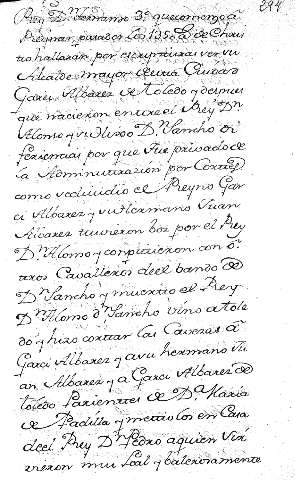 294
Rey Dn. Fernando 3º que comenzo a
Reynar pasados los 1250 Es de Christo
hallaran por escripturas ver su
Alcalde mayor de una Ciudad
Garci Albarez de Toledo y despues
que nacieron entre el Rey Dn
Alonso y su Hijo Dn Sancho di
ferencias por que fue privado de
la Administrazion por Cortes
como reduzido el Reyno Gar
ci Albarez y su Hermano Juan
Albarez tuvieron boz por el Rey
Dn Alonso y conpitieron con o
tros Cavalleros deel bando de
Dn Sancho y muerto el Rey
Dn Alonso Dn Sancho vino a Tole
do y hizo cortar las Cavezas a
Garci Albarez y a su hermano Ju
an Albarez y a Garci Albarez de
Toledo Parientes de Da Maria
de Padilla y metio los en Casa
deel Rey Dn Pedro a quien sir
vieron mui Leal y balerosamente